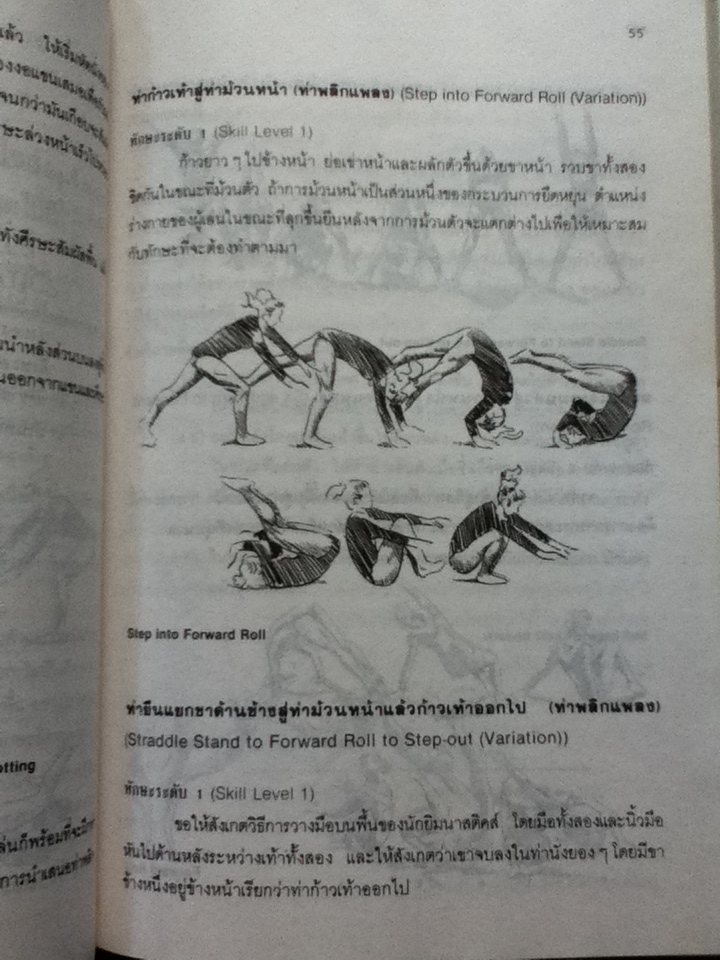 55
ท่าก้าวเท้าสู่ท่าม้วนหน้า (ท่าพลิกแพลง) (Step into Forward Roll (Variation))
ทักษะระดับ 1 (Skill Level 1)
ก้าวยาว ๆ ไปข้างหน้า ย่อเข่าหน้าและผลักตัวขึ้นด้วยขาหน้า รวบขาทั้งสอง
ชิดกันในขณะที่ม้วนตัว ถ้าการม้วนหน้าเป็นส่วนหนึ่งของกระบวนการยืดหยุ่น ตำแหน่ง
ร่างกายของผู้เล่นในขณะที่ลุกขึ้นยืนหลังจากการม้วนตัวจะแตกต่างไปเพื่อให้เหมาะสม
กับทักษะที่จะต้องทำตามมา
Step into Forward Roll
ท่ายืนแยกขาด้านข้างสู่ท่าม้วนหน้าแล้วก้าวเท้าออกไป (ท่าพลิกแพลง)
(Straddle Stand to Forward Roll to Step-out (Variation))
ทักษะระดับ 1 (Skill Level 1)
ขอให้สังเกตวิธีการวางมือบนพื้นของนักยิมนาสติคส์ โดยมือทั้งสองและนิ้วมือ
หันไปด้านหลังระหว่างเท้าทั้งสอง และให้สังเกตว่าเขาจบลงในท่านั่งยอง ๆ โดยมีขา
ข้างหนึ่งอยู่ข้างหน้าเรียกว่าท่าก้าวเท้าออกไป